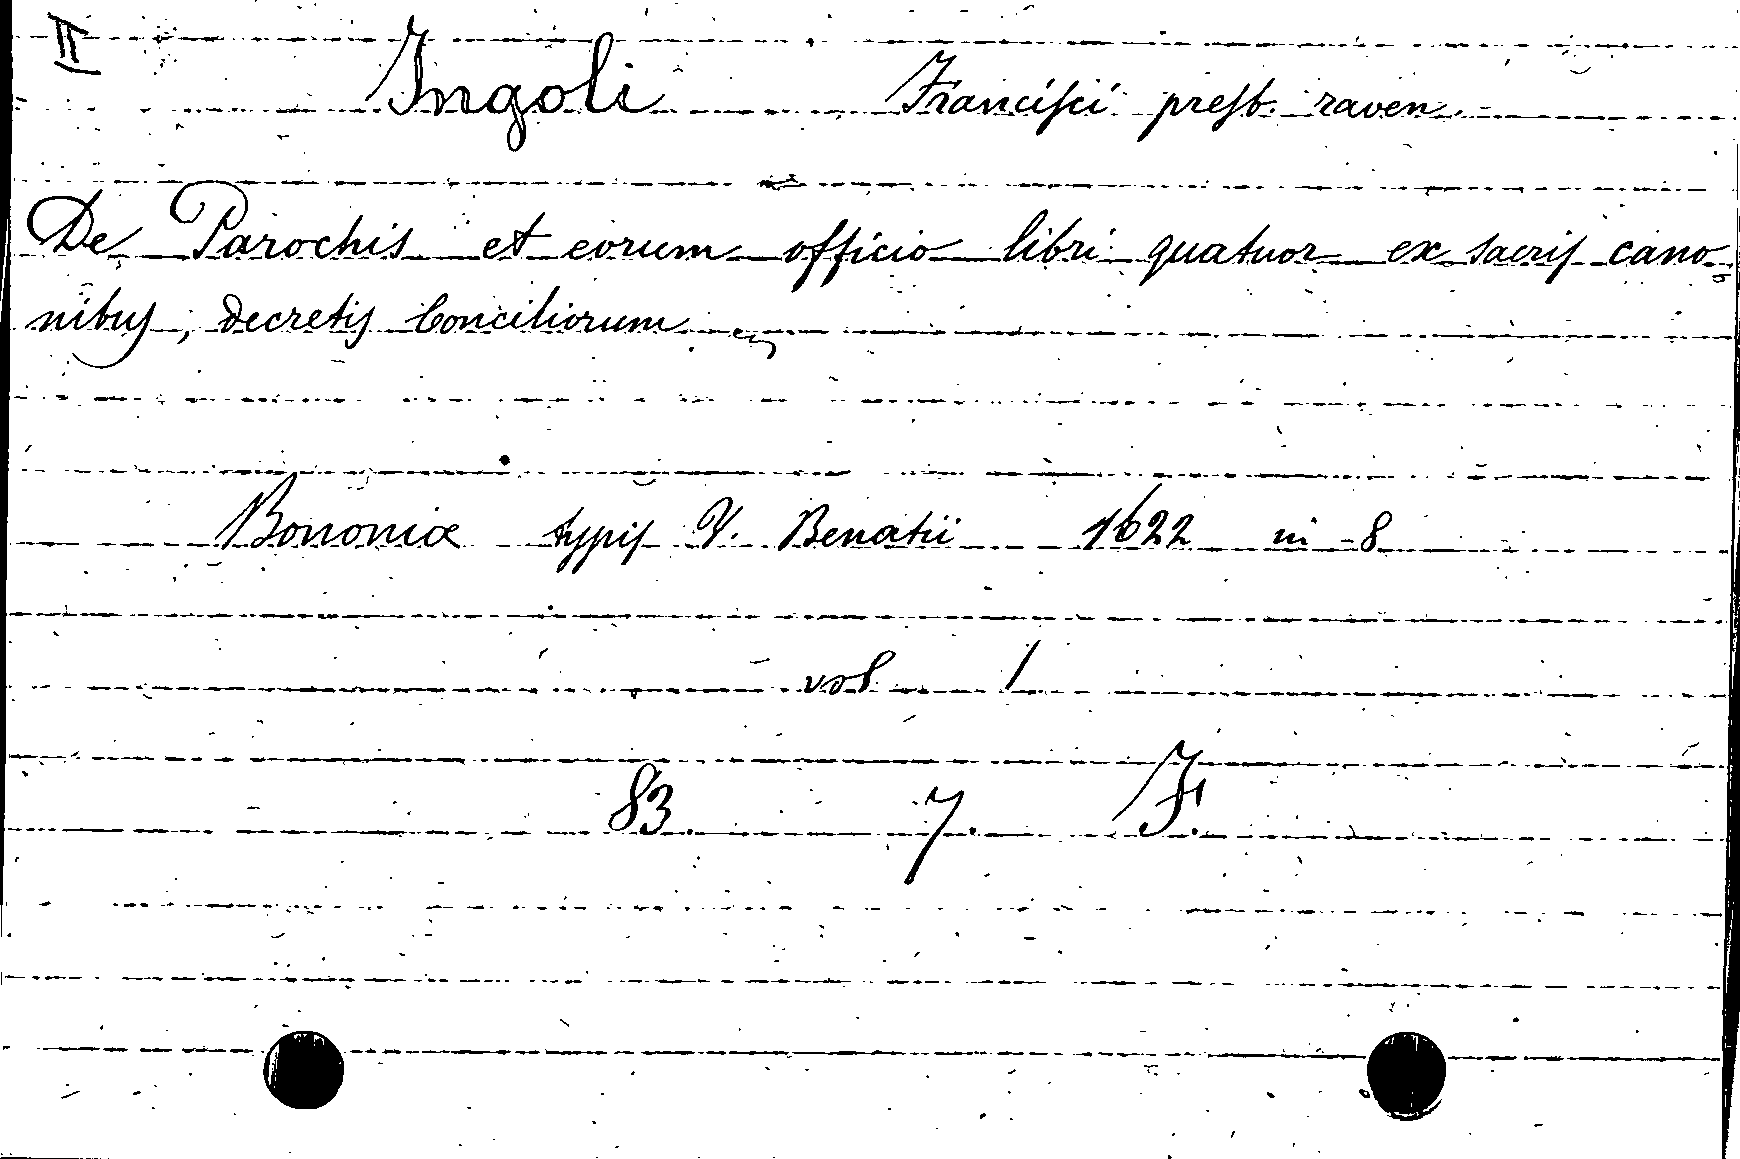 II
Ingoli Francisci presb. raven.
De Parochis et eorum officio libri quatuor ex sacris cano
nibus, decretis Conciliorum
Bononiæ typis V. Benatii 1622 in 8
vol 1
83. 7. F.